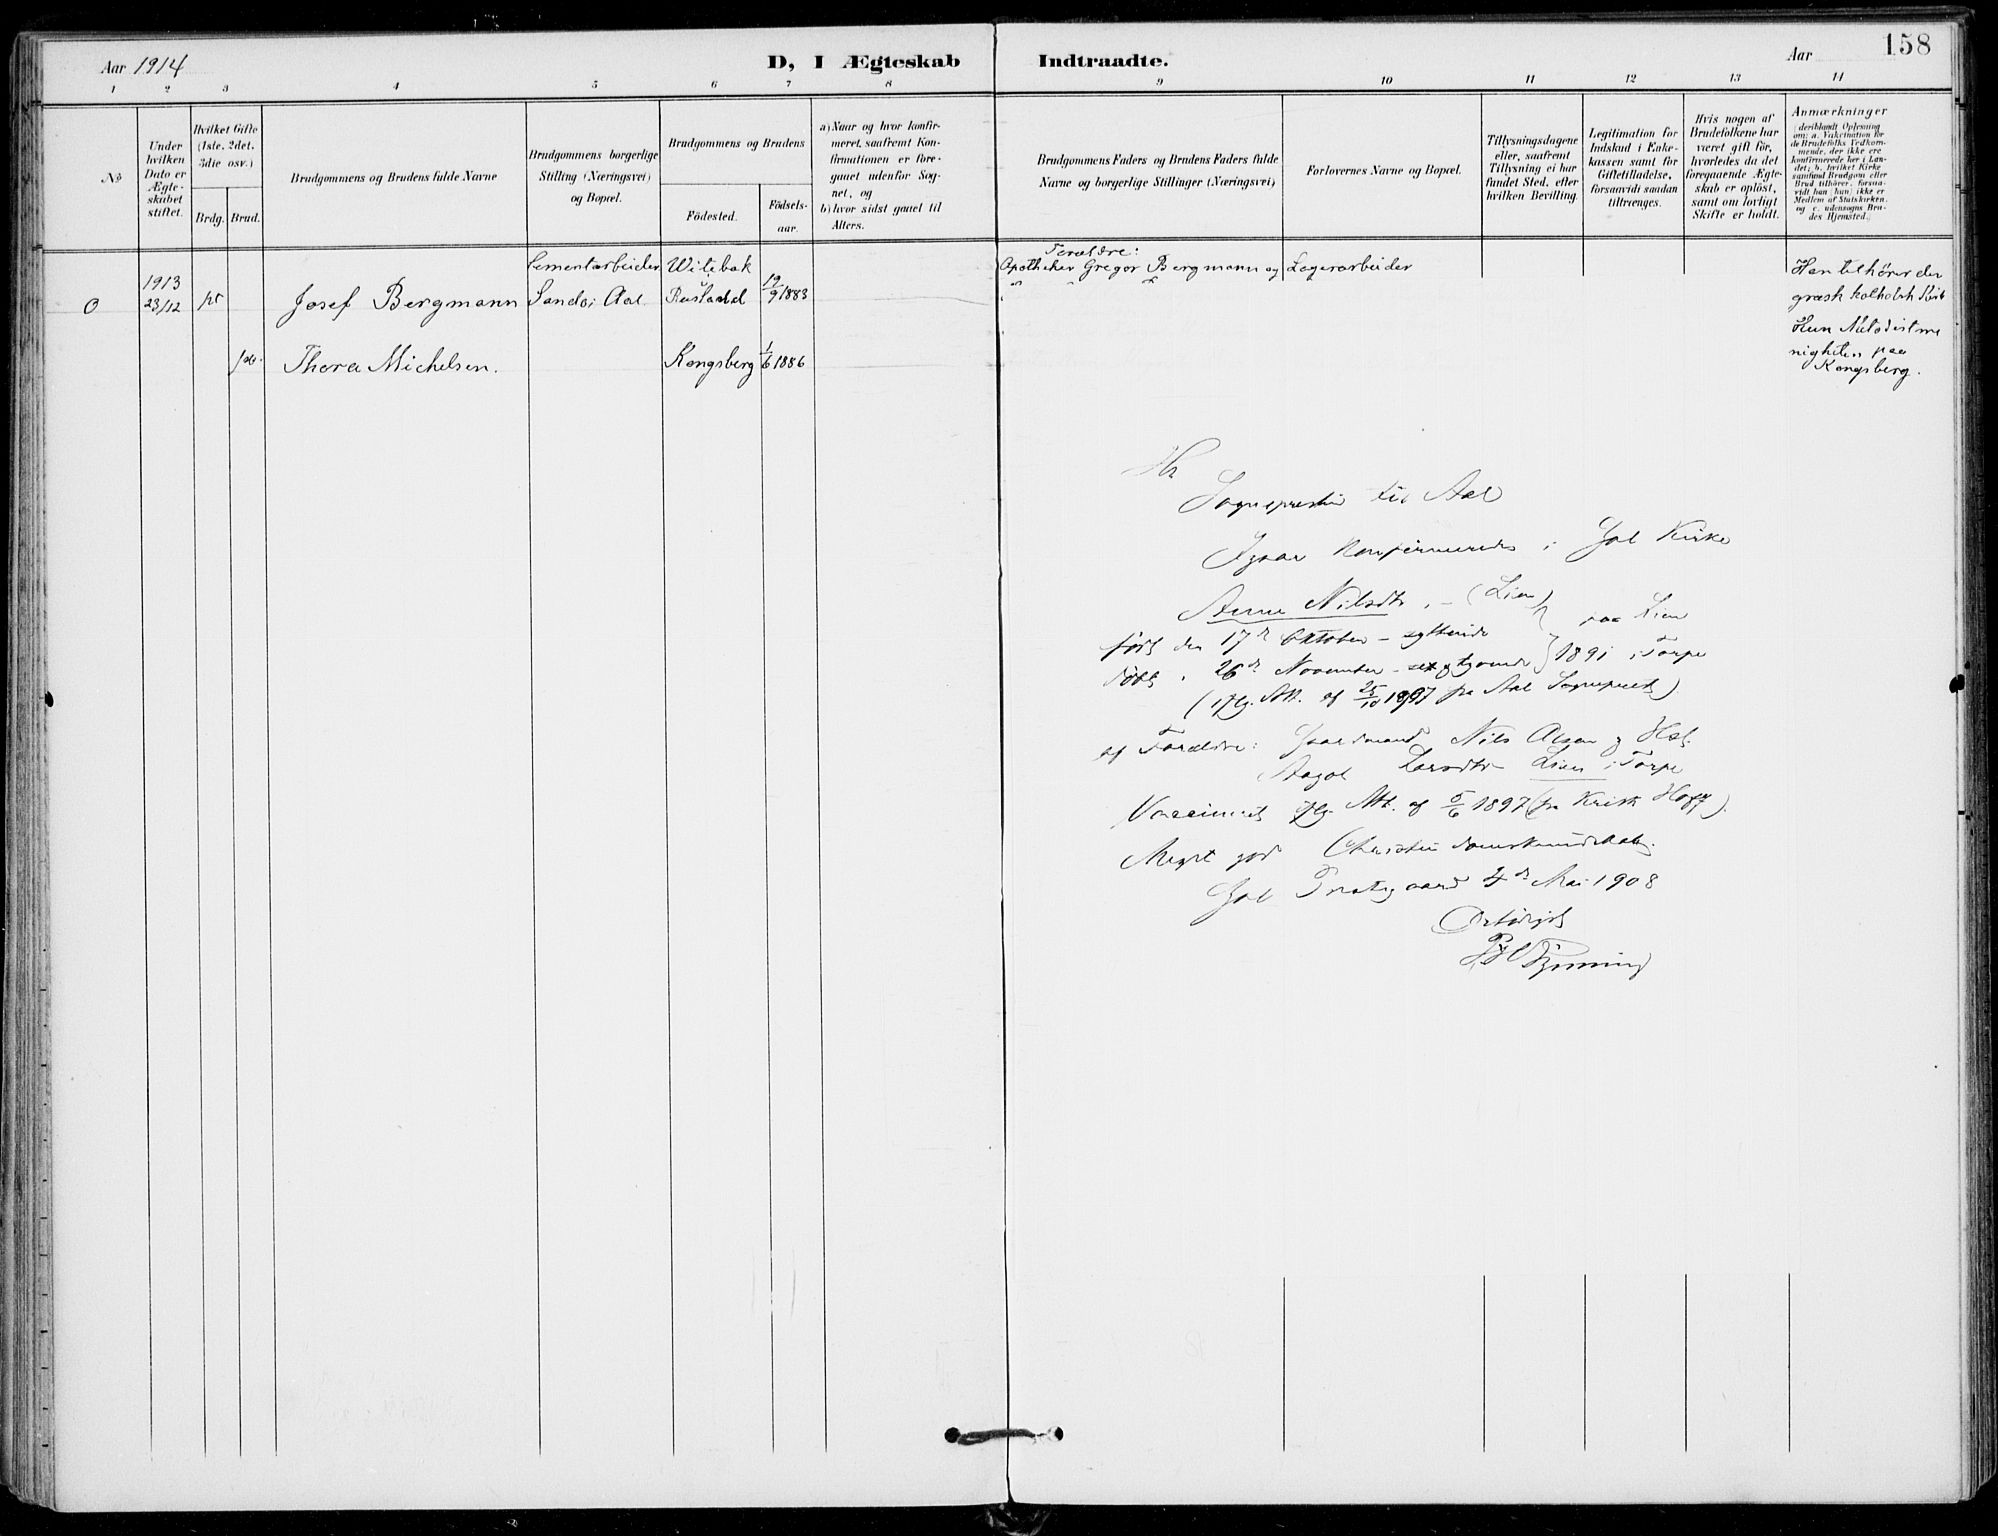 Aar 1914
D, I Ægteskab Indtraadte.
Aar
158
1 2 3 4 5 6 7 8 9 10 11 12 13 14
No
Under
hvilken
Dato er
Ægte-
skabet
stiftet.
Hvilket Gifte
(1ste. 2det.
3die osv.)
Brdg. Brud.
Brudgommens og Brudens fulde Navne
Brudgommens borgerlige
Stilling (Næringsvei)
og Bopæl.
Brudgommens og Brudens
Födested.
Födsels-
aar.
a) Naar og hvor konfir-
meret, saafremt Kon-
firmationen er fore-
gaaet udenfor Sog-
net, og
b) hvor sidst gaaet til
Alters.
Brudgommens Faders og Brudens Faders fulde
Navne og borgerlige Stillinger (Næringsvei)
Forlovernes Navne og Bopæl.
Tillysningsdagene
eller, saafremt
Tillysning ei har
fundet Sted, efter
hvilken Bevilling.
Legitimation for
Indskud i Enke-
kassen samt for
Giftetilladelse,
forsaavidt saadan
tiltrænges.
Hvis nogen af
Brudefolkene har
været gift før,
hvorledes da det
foregaaende Ægte-
skab er opløst,
samt om lovligt
Skifte er holdt.
Anmærkninger
(deriblandt Oplysning
om: a. Vakcination for
de Brudefolks Vedkom-
mende, der ikke ere
konfirmerede her i Lan-
det; b. hvilket Kirke
samfund Brudgom eller
Brud tilhörer, forsaa-
vidt han (hun) ikke er
Medlem af Statskirken.
og c. udensogns Bru-
des Hjemsted.)
0
1913
23/12
Josef Bergmann
Cementarbeider
Sando i Aal
Witebsk
Rusland
19/9 1883
Forældre:
Apotheker Gregor Bergmann og
Lagerarbeider
Han tilhører den
græsk katholsk Kirk
Thora Michelsen.
Kongsberg
1/6 1886
Hun Metodistme
nigheten paa
Kongsberg.
Hr
Sognepresten til Aal
Igaar konfirmeredes i Gol Kirke
Anne Nilsdtr. - (Lien)
født den 17de Oktober - syttende
paa Lien
døbt " 26de November - 1891 i Torpe
(iflg. Att. af 25/10 1897 fra Aal Sogneprest)
af Forældre: Gaardmand Nils Olsen og Hst.
Aagot Larsdtr Lien i Torpe
Vaccineret iflg. Att. af 5/6 1897 (fra Kristk Hoff).
Meget god Christendomskundskab.
Gol Prestegaard 4de Mai 1908
Ærbødigst